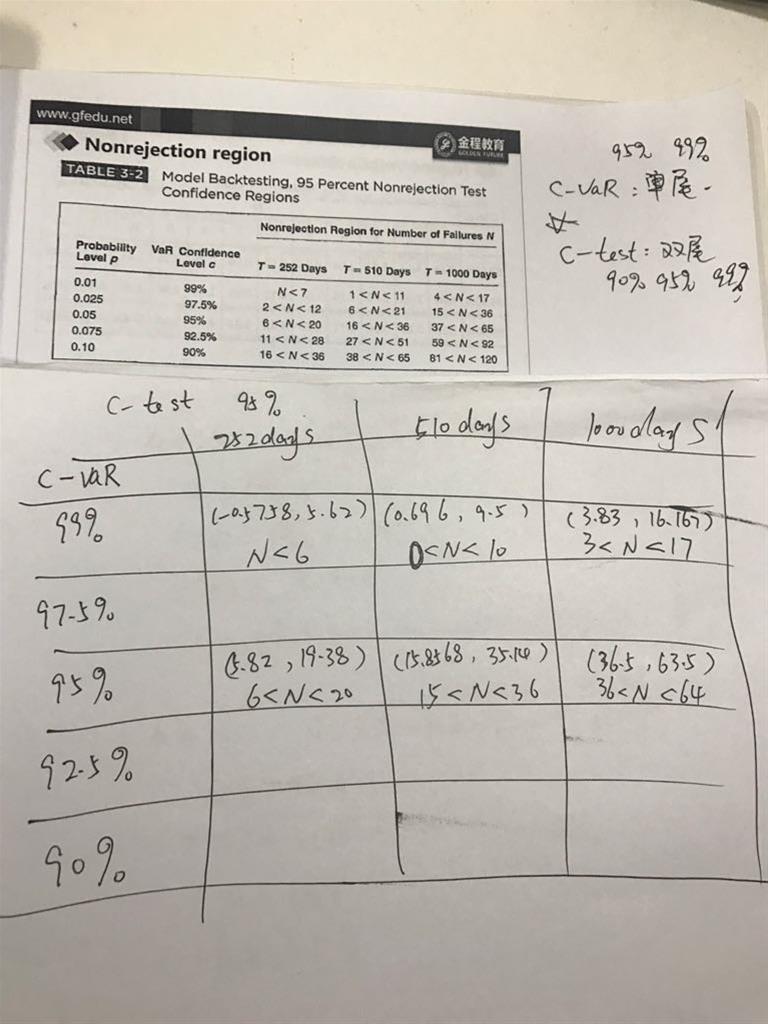 www.gfedu.net
Nonrejection region
金程教育
GOLDEN FUTURE
TABLE 3-2 Model Backtesting, 95 Percent Nonrejection Test
Confidence Regions
Nonrejection Region for Number of Failures N
Probability Level p VaR Confidence Level c T = 252 Days T = 510 Days T = 1000 Days
0.01 99% N < 7 1 < N < 11 4 < N < 17
0.025 97.5% 2 < N < 12 6 < N < 21 15 < N < 36
0.05 95% 6 < N < 20 16 < N < 36 37 < N < 65
0.075 92.5% 11 < N < 28 27 < N < 51 59 < N < 92
0.10 90% 16 < N < 36 38 < N < 65 81 < N < 120
95% 99%
C-VaR : 单尾.
C-test : 双尾
90% 95% 99%
C-test 95%
252days 510days 1000days
C-VaR
99% (-0.5758, 5.62) (0.696, 9.5) (3.83, 16.167)
N<6 0<N<10 3<N<17
97.5%
95% (5.82, 19.38) (15.8568, 35.14) (36.5, 63.5)
6<N<20 15<N<36 36<N<64
92.5%
90%